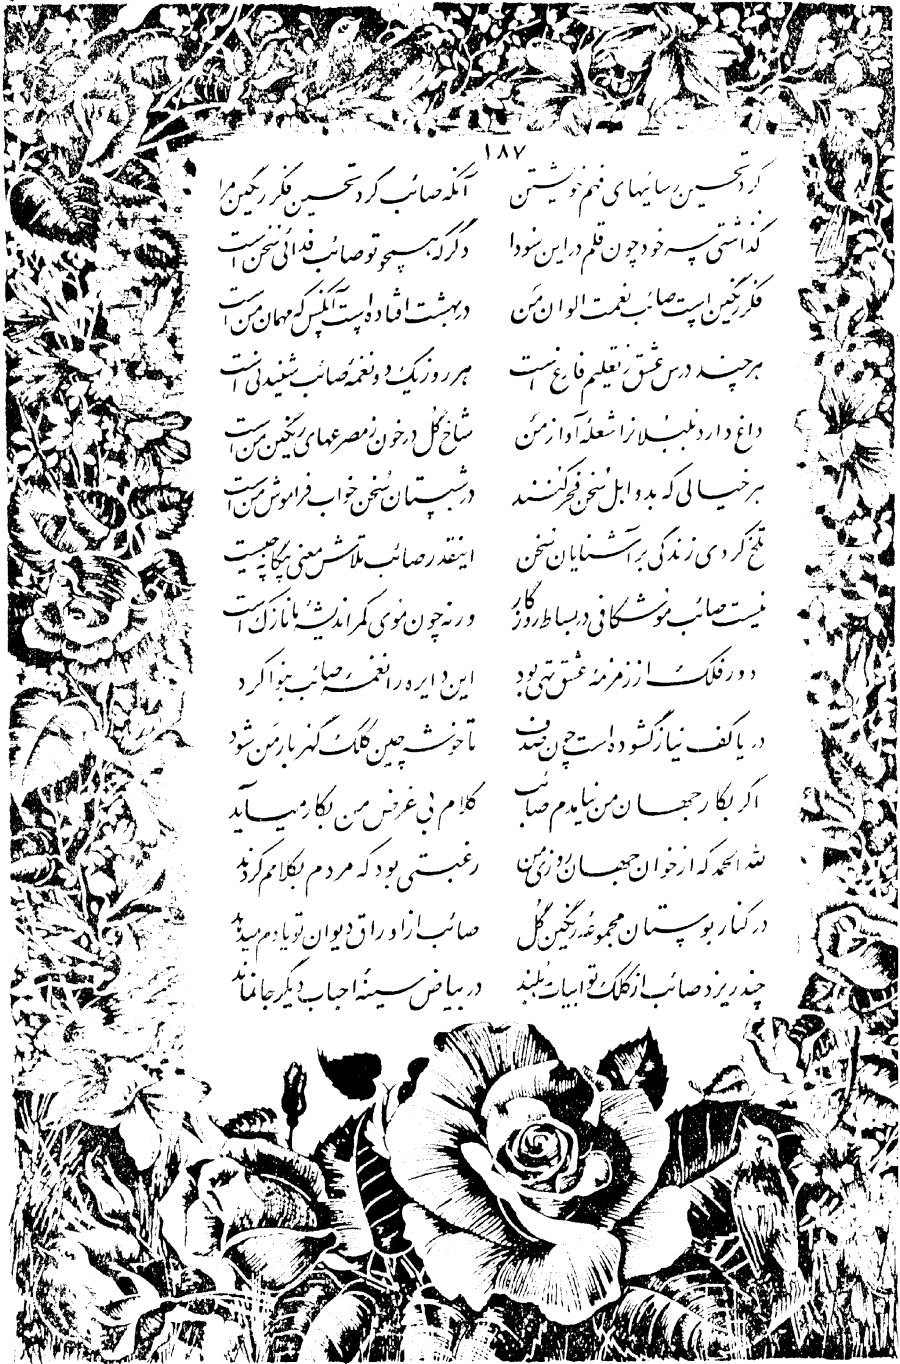 ۱۸۷
کرد تحسین رسائیهای فهم خویشتن آنکه صائب کرد تحسین فکر رنگین مرا
گذاشتی سر خود چون قلم در این سودا دگر که همچو تو صائب فدائی سخن است
فکر رنگین است صائب نعمت الوان من در بهشت افتاده است آنکس که مهمان من است
هر چند درس عشق ز تعلیم فارغ است هر روز یک دو نغمه صائب شنیدنی است
داغ دارد بلبلانرا شعلهٔ آواز من شاخ گل در خون ز مصرعهای رنگین من است
هر خیالی که بدو اهل سخن فخر کنند در شبستان سخن خواب فراموش من است
تلخ کردی زندگی بر آشنایان سخن اینقدر صائب تلاش معنی بیگانه چیست
نیست صائب موشکافی در بساط روزگار ورنه چون موی کمر اندیشهٔ ما نازک است
دور فلک از زمزمهٔ عشق تهی بود این دایره را نغمهٔ صائب بنوا کرد
دریا کف نیاز گشوده است چون صدف تا خوشه چین کلک گهربار من شود
اگر بکار جهان من نیامدم صائب کلام بی غرض من بکار میآید
لله الحمد که از خوان جهان روزی من رغبتی بود که مردم بکلامم کردند
در کنار بوستان مجموعهٔ رنگین گل صائب از اوراق دیوان تو یادم میدهد
چند ریزد صائب از کلک تو ابیات بلند در بیاض سینهٔ احباب دیگر جا نماند